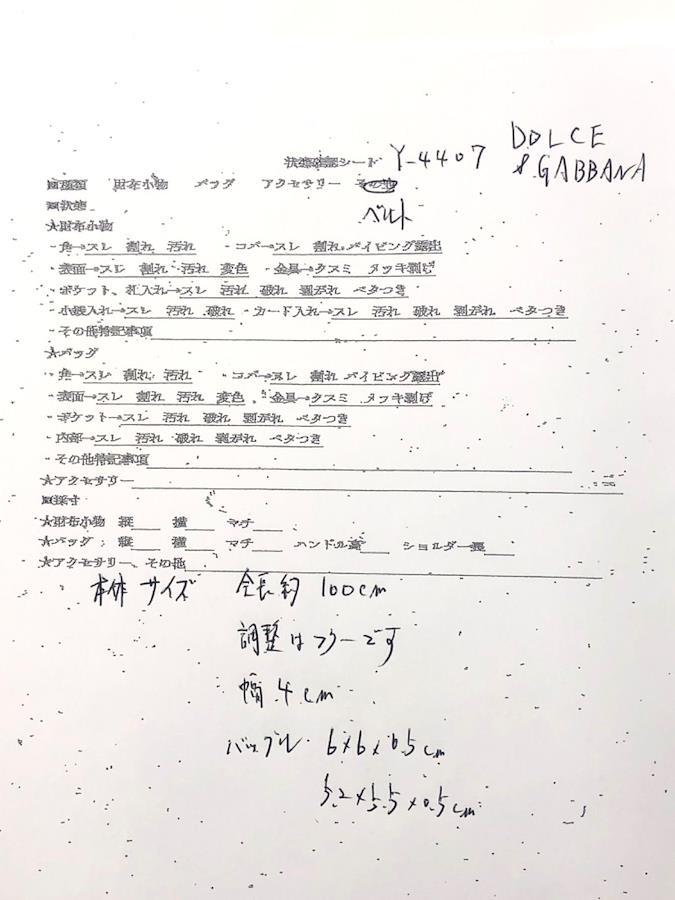 状態確認シート Y-4407 DOLCE
& GABBANA
■種類 財布小物 バッグ アクセサリー その他
ベルト
■状態
★財布小物
・角→スレ 割れ 汚れ ・コバ→スレ 割れ パイピング露出
・表面→スレ 割れ 汚れ 変色 ・金具→クスミ メッキ剥げ
・ポケット、札入れ→スレ 汚れ 破れ 剥がれ ベタつき
・小銭入れ→スレ 汚れ 破れ ・カード入れ→スレ 汚れ 破れ 剥がれ ベタつき
・その他特記事項
★バッグ
・角→スレ 割れ 汚れ ・コバ→スレ 割れ パイピング露出
・表面→スレ 割れ 汚れ 変色 ・金具→クスミ メッキ剥げ
・ポケット→スレ 汚れ 破れ 剥がれ ベタつき
・内部→スレ 汚れ 破れ 剥がれ ベタつき
・その他特記事項
★アクセサリー
■採寸
★財布小物 縦 横 マチ
★バッグ: 縦 横 マチ ハンドル高 ショルダー長
★アクセサリー、その他
本体サイズ 全長約 100cm
調整はフリーです
幅 4cm
バックル 6×6×0.5cm
5.2×5.5×0.5cm